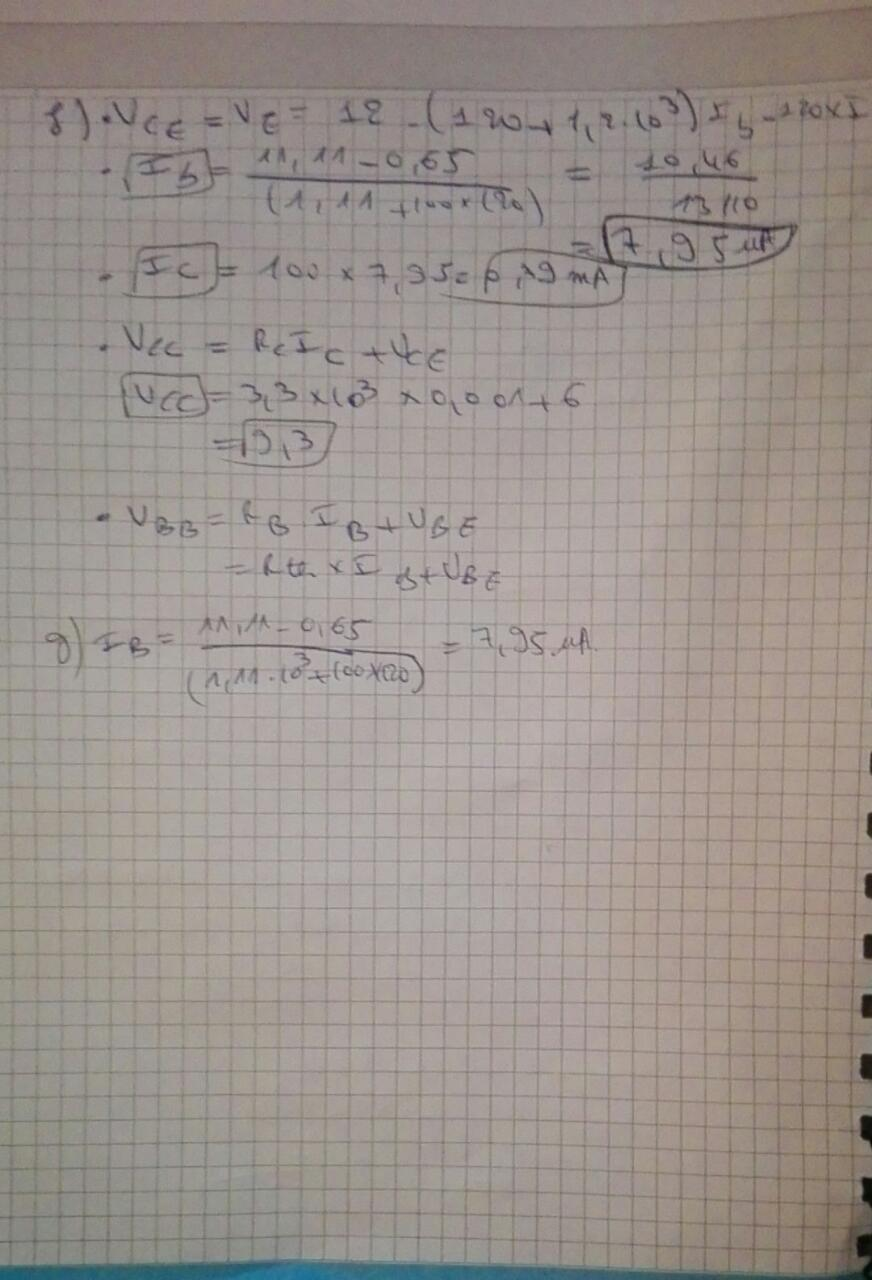 f) • VCE = VE = 12 - (120 + 1,2.10³) Ib - 120 x I
• Ib = 11,11 - 0,65 / (1,11 + 100 x 120) = 10,46 / 13110
= 7,95 µA
• IC = 100 x 7,95 = 0,79 mA
• VCC = RC IC + VCE
VCC = 3,3 x 10³ x 0,001 + 6
= 9,3
• VBB = RB IB + VBE
= Rth x IB + VBE
g) IB = 11,11 - 0,65 / (1,11.10³ + 100 x 120) = 7,95 µA.